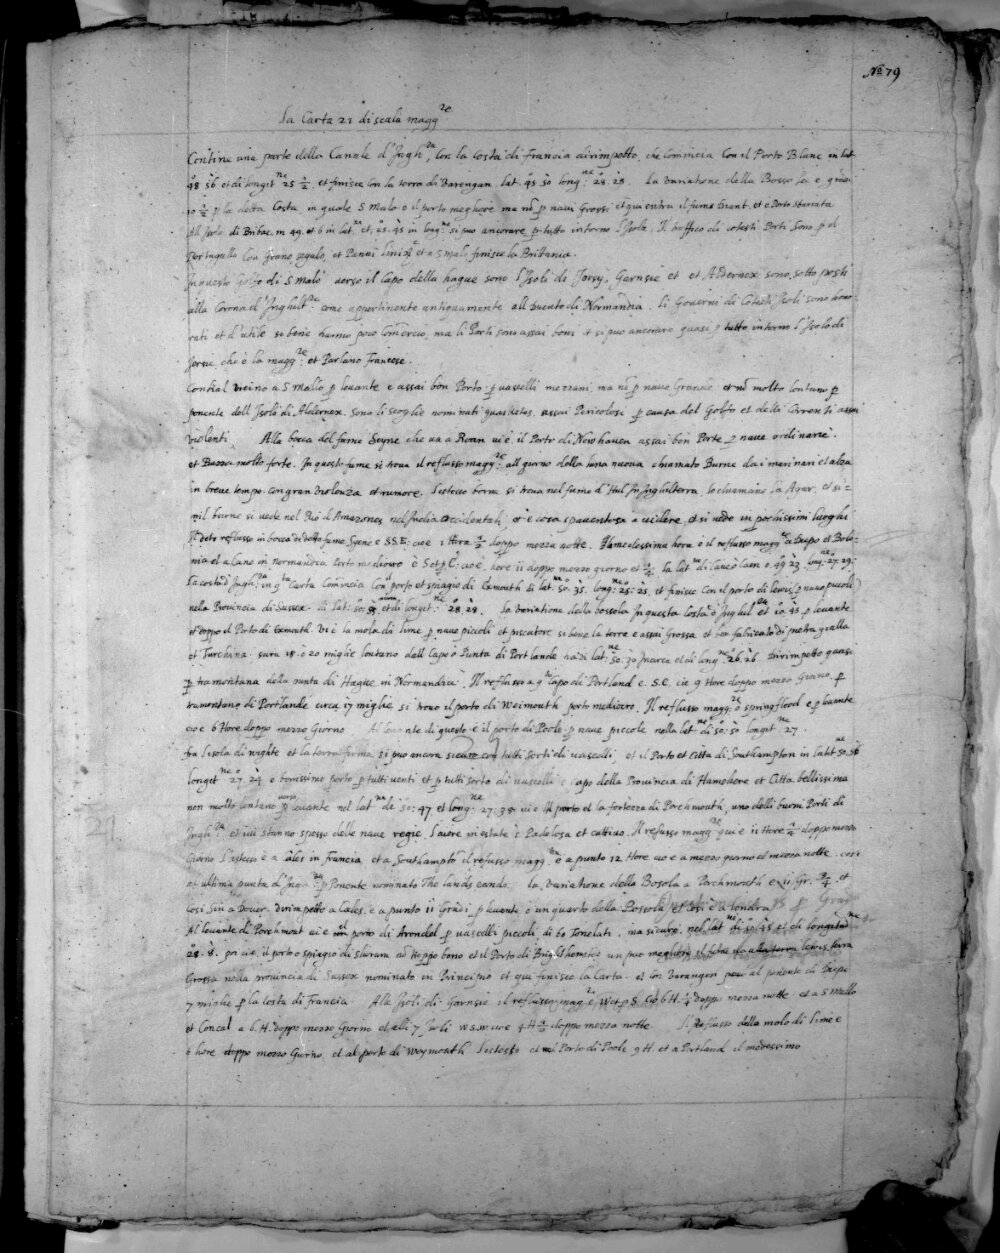 No 79
La Carta 21 di scala magg.re
Contine una parte della Canale d'Ingh.ra, con la costa di Francia dirimpetto, che Comincia Con il Porto Blanc in lat.
48 56 et di longit.ne 25 1/2, et finisce con la terra di Barengan lat. 49 50 long.ne 28. 28. La Variatione della Bossola e gradi
10 1/2 p la detta Costa in quale S Malo e il porto megliore ma no p navi Grossi et qui entra il fume Drant. et e Porto sbarrata
All Isole di Brihac in 49. et 6 in lat.ne et, 25. 45 in long.ne si puo ancorare p tutto intorno l'Isola. Il traffico di cotesti Porti sono p il
Portugallo con Grano, segalo, et Panni lini et a S malo finisce la Brittania.
In questo Golfo di S Malo verso il Capo della hague sono l'Isoli di Jersy, Garnsie et et Aldernex sono sotto posti
alla Corona d'Inghilt.ra come appertinente antiquamente all Ducato di Normandia. li Governi di Cotesti Isoli sono hono-
rati et d'utile si bene hanno poco Comercio, ma li Porti sono assai boni et si puo ancorare quasi p tutto intorno l'Isola di
Jersie che è la magg.re et Parlano Francese.
Conkal vicino a S Malo p levante e assai bon Porto p vasselli mezzani, ma no p nave Grande et no molto lontano p
ponente dell Isola di Aldernex. sono li scoglie nominati quasketas, assai Pericolosi p causa del Golfo et delli Correnti assai
violenti Alla bocca del fume Seyne che va a Roan vi è il Porto di Newhaven assai bon Porte p nave ordinarie.
et Barra molto forte. In questo fume si trova il reflusso magg.re all giorno della luna nuova chiamato Burne da i marinari et alza
in breve tempo con gran violenza et rumore. l'istesso borne si trova nel fume d'Hul In Inghilterra, lo chiamano la Agar, et si-
mil burne si vede nel Rio d'Amazones nel India Occidentali, et è cosa spaventosa a videre, et si vede in pochissimi luoghi
Il detto reflusso in bocca di detto fume Syene e S.S.E. cioe 1 Hora 1/2 doppo mezza notte. Hamedessima hora e il reflusso magg.re a Diepo et Bolo-
nia et a Cane in normandia Porto mediocre è S et p E: cioe, hore 11 doppo mezzo giorno et 1/4 la lat.ne di Cane ò Caen e 49 23 long.ne 27. 29.
La costa d'Ingh.ra in q.ta Carta Comincia Con il porto et spiagio di Exmouth di lat.ne 50. 35. long.ne 25: 25, et finisce Con il porto di lewis p nave piccoli
nella Provincia di Sussex. di lat: 50: et di longit.ne 28 28. La Variatione della bossola In questa Costa d'Inghil.ra et 10 45 p levante
et doppo il Porto di Exmouth. Vi è la mola di lime p nave piccoli et piscatore si bene la terra e assai Grossa et ben fabricato di pietra gialla
et Turchina. sara 18 ò 20 miglie lontano dall Capo ò Punta di Portlande ha di lat.ne 50. 30 incirca et di long.ne 26. 26 Dirimpetto quasi
p tramontana della punta di Hague in Normandia. Il reflusso a q.to Capo di Portland e. S.E. cie 9 Hore doppo mezzo Giorno. p
tramontano di Portlande circa 17 miglie si trovo il porto di Weimouth porto mediocre. Il reflusso magg.re ò springflood e p levante
cio e 6 Hore doppo mezzo Giorno Al levante di questo è il porto di Poole p nave piccole nella lat.ne di 50: 50 longit.ne 27.
fra l'isola di wighte et la terra firma si puo ancora sicuro con tutti sorti di vascelli et il Porto et Citta di Southampton in latit.ne 50. 56
longit.ne 27. 24 e bonissimo porto p tutti venti et p tutti sorto di vascelli e capo della Provincia di Hamshere et Citta bellissima
non molto lontano verso p levante nel lat.ne di 50: 47 et long.ne 27: 38 vi è il porto et la fortezza di Porchmouth, uno delli buoni Porti di
Ingh.ra et ivi stanno spesso delle nave regie l'aiere in estate è Padelosa et cattivo. Il refusso magg.re qui è 11 Hore 1/4 doppo mezzo
Giorno l'istesso è a Cales in Francia et a Southampto il refusso magg.re è a punto 12 Hore cio e a mezzo giorno et mezza notte. cosi
et ultima punta d'Ingh.ra p Ponente nominato The lands eande. la Variatione della Bosola a Porchmouth e 11 Gr. 3/4. et
Cosi Sin a Dover. dirimpetto a Cales. e a punto 11 Gradi p levante o un quarto della Bossola, et Cosi è a Londra
Al levante di Porchmout vi è un porto di Arondel p vascelli piccoli di 60 Tonelati, ma sicuro. nel lat.ne di 50 45 et di longitu.ne
28. 8. poi cie il porto o spiagio di shoram no troppo bono et il Porto di Brighthemsted un puo megliore lewis terra
Grossa nella provincia di Sussex nominato in Principio et qui finisce la Carta. et con Barangen poco al ponente di Diepe
7 miglie p la costa di Francia. Alla Isoli di Garnsie il reflusso magg.re è, W et p S. cio 6 H. 1/4 doppo mezza notte et a S Mallo
et Concal a 6. H. doppo mezzo Giorno et alli 7 Isoli W.S.W cioe 4 H 1/2 doppo mezza notte. Il Reflusso della molo di lime e
6 hore doppo mezzo Giorno, et al porto di Weymouth l'istesso et nel Porto di Poole 9 H. et a Portland il medessimo